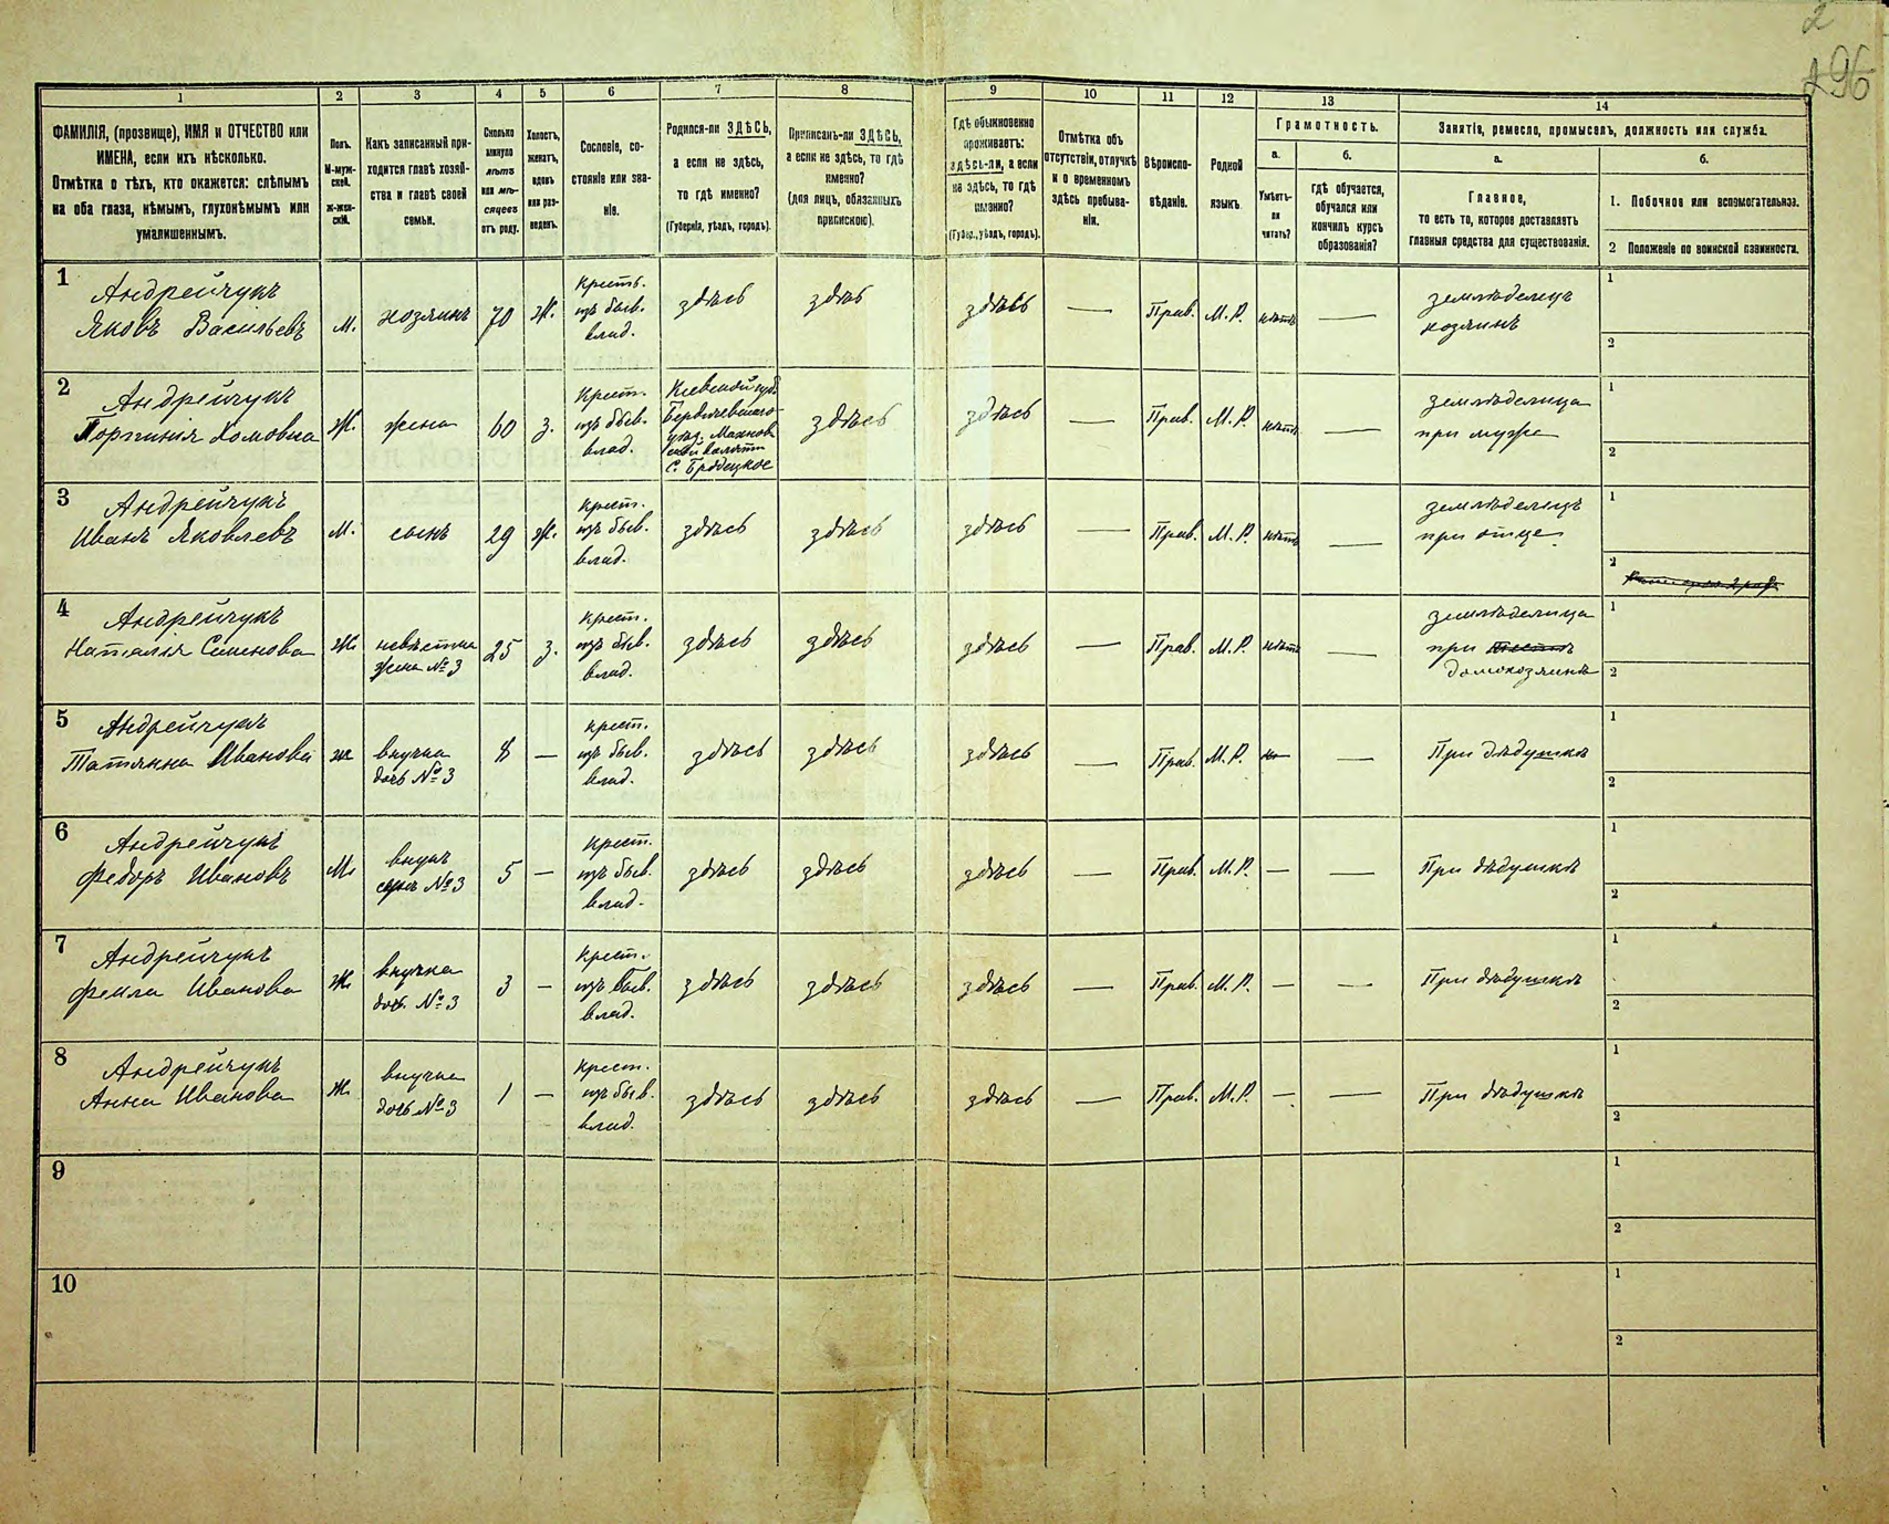 2
296
1
2
3
4
5
6
7
8
9
10
11
12
13
14
ФАМИЛІЯ, (прозвище), ИМЯ и ОТЧЕСТВО или
ИМЕНА, если ихъ нѣсколько.
Отмѣтка о тѣхъ, кто окажется: слѣпымъ
на оба глаза, нѣмымъ, глухонѣмымъ или
умалишеннымъ.
Полъ.
М-муж-
ской.
ж-жен-
скій.
Какъ записанный при-
ходится главѣ хозяй-
ства и главѣ своей
семьи.
Сколько
минуло
лѣтъ
или мѣ-
сяцевъ
отъ роду.
Холостъ,
женатъ,
вдовъ
или раз-
веденъ.
Сословіе, со-
стояніе или зва-
ніе.
Родился-ли ЗДѢСЬ,
а если не здѣсь,
то гдѣ именно?
(Губернія, уѣздъ, городъ).
Приписанъ-ли ЗДѢСЬ,
а если не здѣсь, то гдѣ
именно?
(для лицъ, обязанныхъ
припискою).
Гдѣ обыкновенно
проживаетъ:
здѣсь-ли, а если
не здѣсь, то гдѣ
именно?
(Губер., уѣздъ, городъ).
Отмѣтка объ
отсутствіи, отлучкѣ
и о временномъ
здѣсь пребыва-
ніи.
Вѣроиспо-
вѣданіе.
Родной
языкъ.
Грамотность.
а.
б.
Умѣетъ-
ли
читать?
гдѣ обучается,
обучался или
кончилъ курсъ
образованія?
Занятія, ремесло, промыселъ, должность или служба.
а.
б.
Главное,
то есть то, которое доставляетъ
главныя средства для существованія.
1. Побочное или вспомогательное.
2 Положеніе по воинской повинности.
1
Андрейчукъ
Яковъ Васильевъ
М.
хозяинъ
70
ж.
Крестъ.
изъ быв.
влад.
здѣсь
здѣсь
здѣсь
—
Прав.
М. Р.
нѣтъ
—
земледѣлецъ
хозяинъ
1
2
2
Андрейчукъ
Хомовна
Ж.
жена
60
з.
Крест.
изъ быв.
влад.
Кіевской губ.
Бердичевскаго
уѣзд. Махнов
ской волости
С. Бродецкое
здѣсь
здѣсь
—
Прав.
М. Р.
нѣтъ
—
земледѣлица
при мужѣ
1
2
3
Андрейчукъ
Иванъ Яковлевъ
М.
сынъ
29
ж.
Крест.
изъ быв.
влад.
здѣсь
здѣсь
здѣсь
—
Прав.
М. Р.
нѣтъ
—
земледѣлецъ
при отцѣ
1
2
4
Андрейчукъ
Наталія Семенова
Ж
невѣстка
жена № 3
25
з.
Крест.
изъ быв.
влад.
здѣсь
здѣсь
здѣсь
—
Прав.
М. Р.
нѣтъ
—
земледѣлица
при
домохозяинѣ
1
2
5
Андрейчукъ
Татьяна Иванова
ж
внучка
дочь № 3
8
—
Крест.
изъ быв.
влад.
здѣсь
здѣсь
здѣсь
—
Прав.
М. Р.
—
При дѣдушкѣ
1
2
6
Андрейчукъ
Федоръ Ивановъ
М
внукъ
сынъ № 3
5
—
Крест.
изъ быв.
влад.
здѣсь
здѣсь
здѣсь
—
Прав.
М. Р.
—
—
При дѣдушкѣ
1
2
7
Андрейчукъ
Иванова
Ж
внучка
доч. № 3
3
—
Крест.
изъ быв.
влад.
здѣсь
здѣсь
здѣсь
—
Прав.
М. Р.
—
—
При дѣдушкѣ
1
2
8
Андрейчукъ
Анна Иванова
Ж
внучка
дочь № 3
1
—
Крест.
изъ быв.
влад.
здѣсь
здѣсь
здѣсь
—
Прав.
М. Р.
—
—
При дѣдушкѣ
1
2
9
1
2
10
1
2